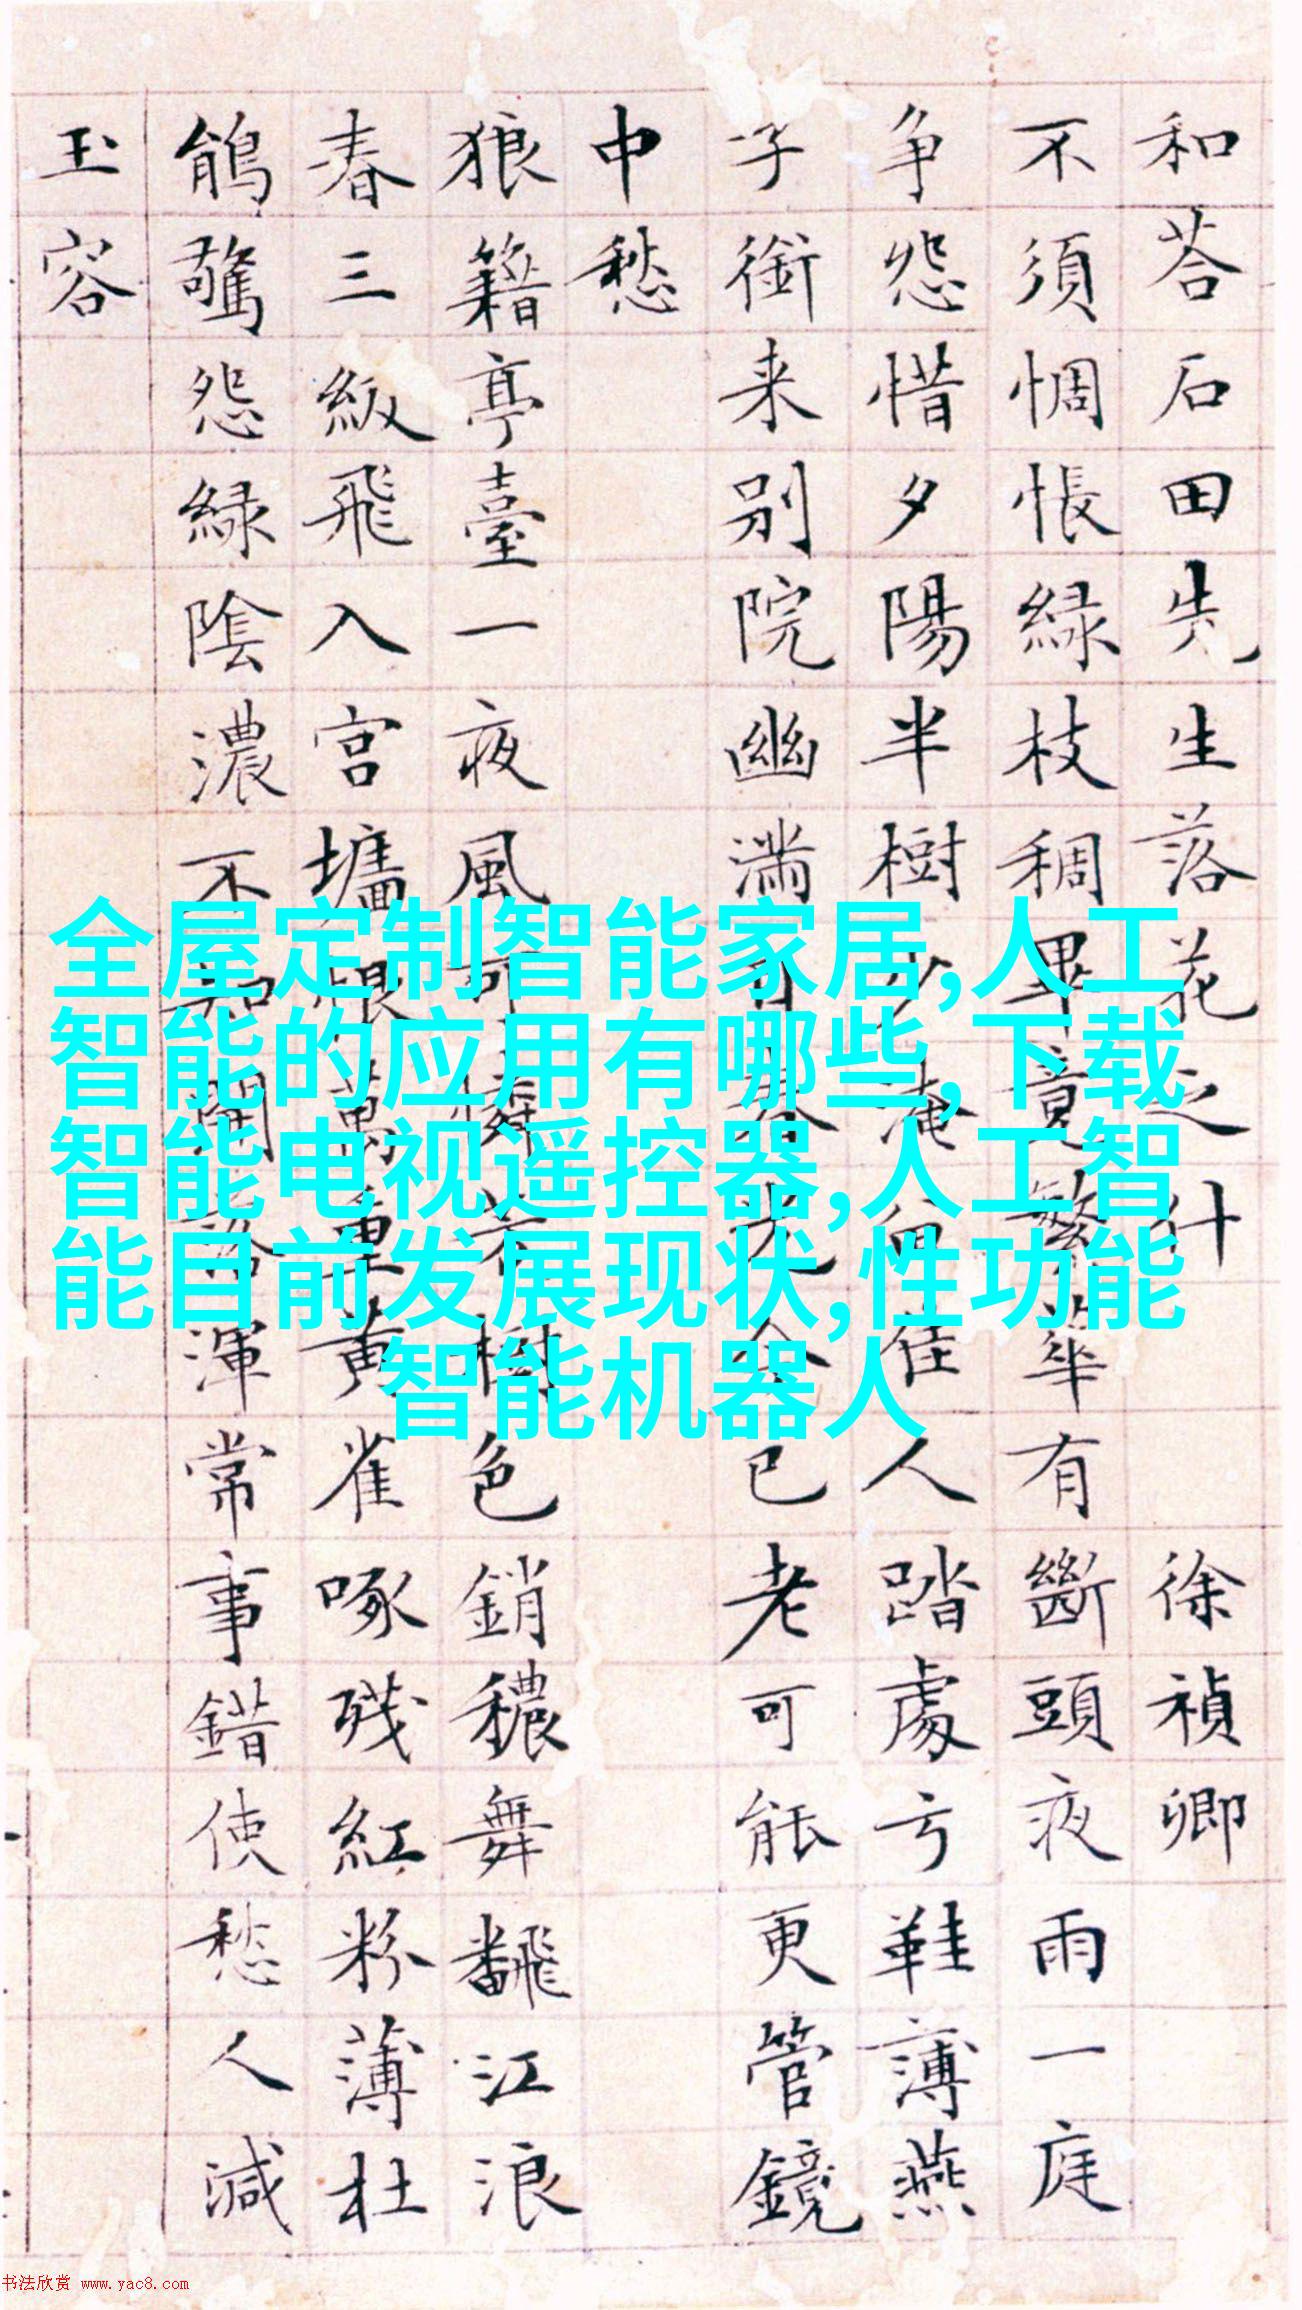 和荅石田先生落花之什 徐禎卿
不須惆悵緑枝稠畢竟繁華有斷頭夜雨一庭
争怨惜夕陽半樹少淹留佳人踏處弓鞋薄燕
子銜来别院幽滿目春光今已老可能更管鏡
中愁
狼籍亭臺一夜風可憐芳樹色銷穠舞飜江浪
春三級飛入宮墻恨萬重黄雀啄殘紅粉薄杜
鵑驚怨緑陰濃不知開落渾常事錯使愁人減
玉容
全屋定制智能家居,人工
智能的应用有哪些,下载
智能电视遥控器,人工智
能目前发展现状,性功能
智能机器人
书法欣赏 www.yac8.com